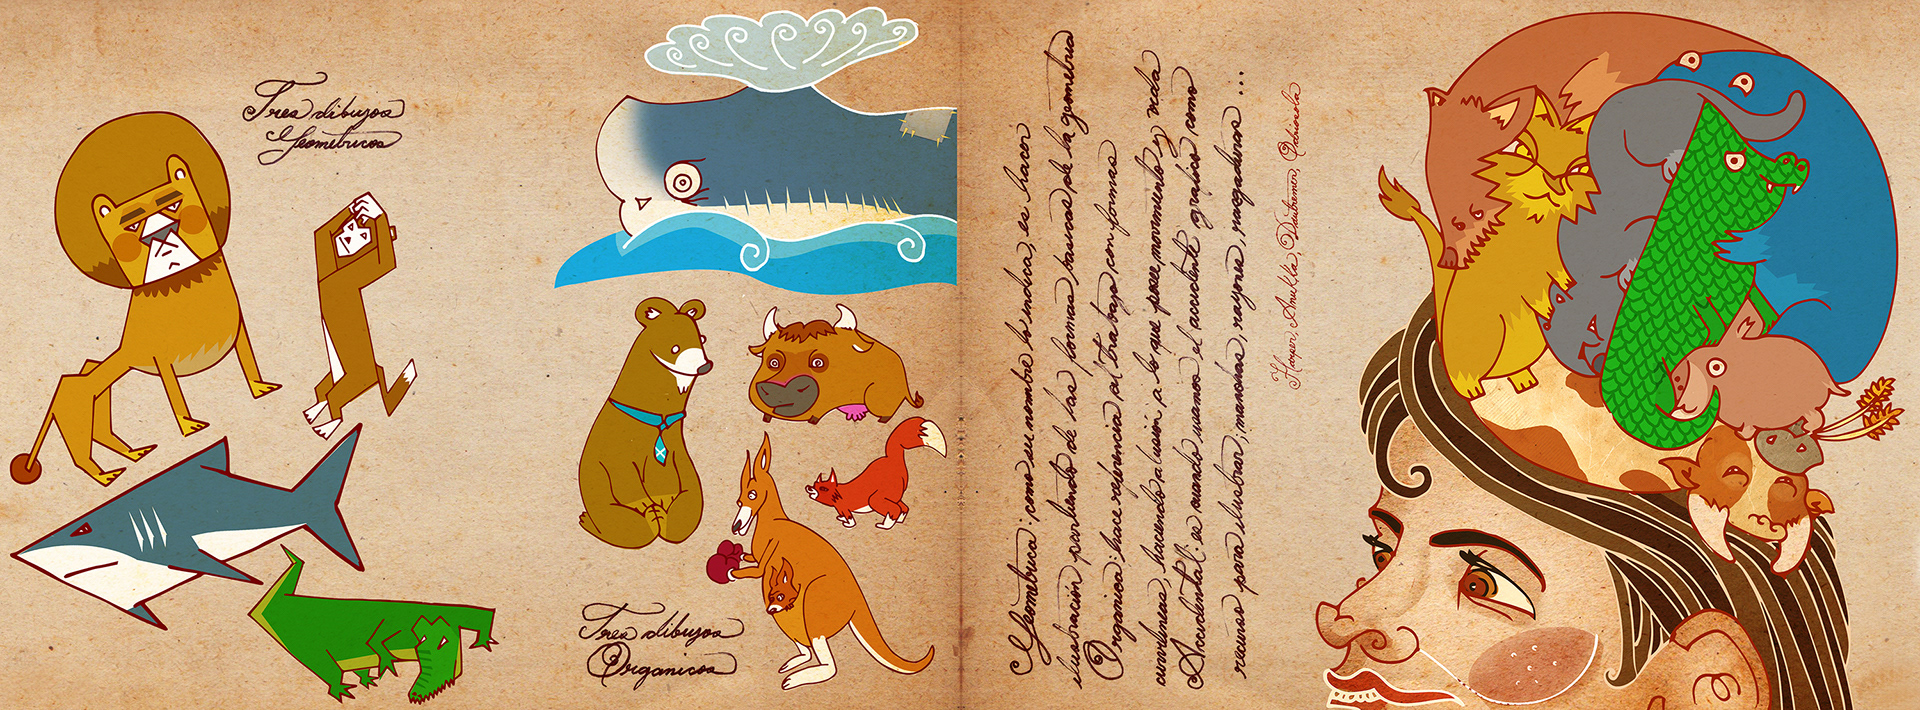 Tres dibujos
Geometricos
Tres dibujos
Organicos
Geometrica: como su nombre lo indica, es hacer
ilustración partiendo de las formas basicas de la geometria
Organica: hace referencia al trabajo con formas
curvilineas, haciendo alusión a lo que posee movimiento y vida
Accidental: es cuando usamos el accidente grafico como
recurso para ilustrar; manchas, rayones, rasgaduras ...
Harper, Anukla, Dautremer,